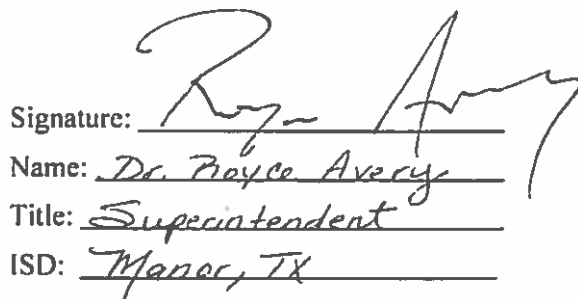 Signature: Royce Avery
Name: Dr. Royce Avery
Title: Superintendent
ISD: Manor, TX